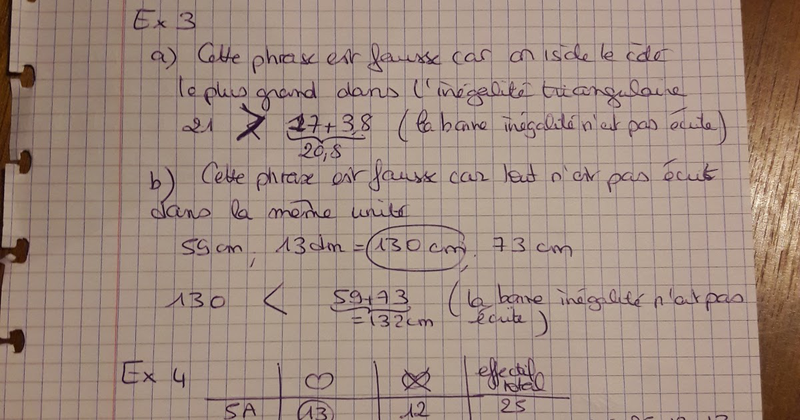 Ex 3
a) Cette phrase est fausse car on isole le côté
le plus grand dans l'inégalité triangulaire
21 > 17+3,8 (la bonne inégalité n'est pas écrite)
20,8
b) Cette phrase est fausse car tout n'est pas écrit
dans la même unité
59 cm ; 13 dm = 130 cm ; 73 cm
130 < 59+73 (la bonne inégalité n'est pas
= 132 cm écrite)
Ex 4 effectif
total
5A 13 12 25